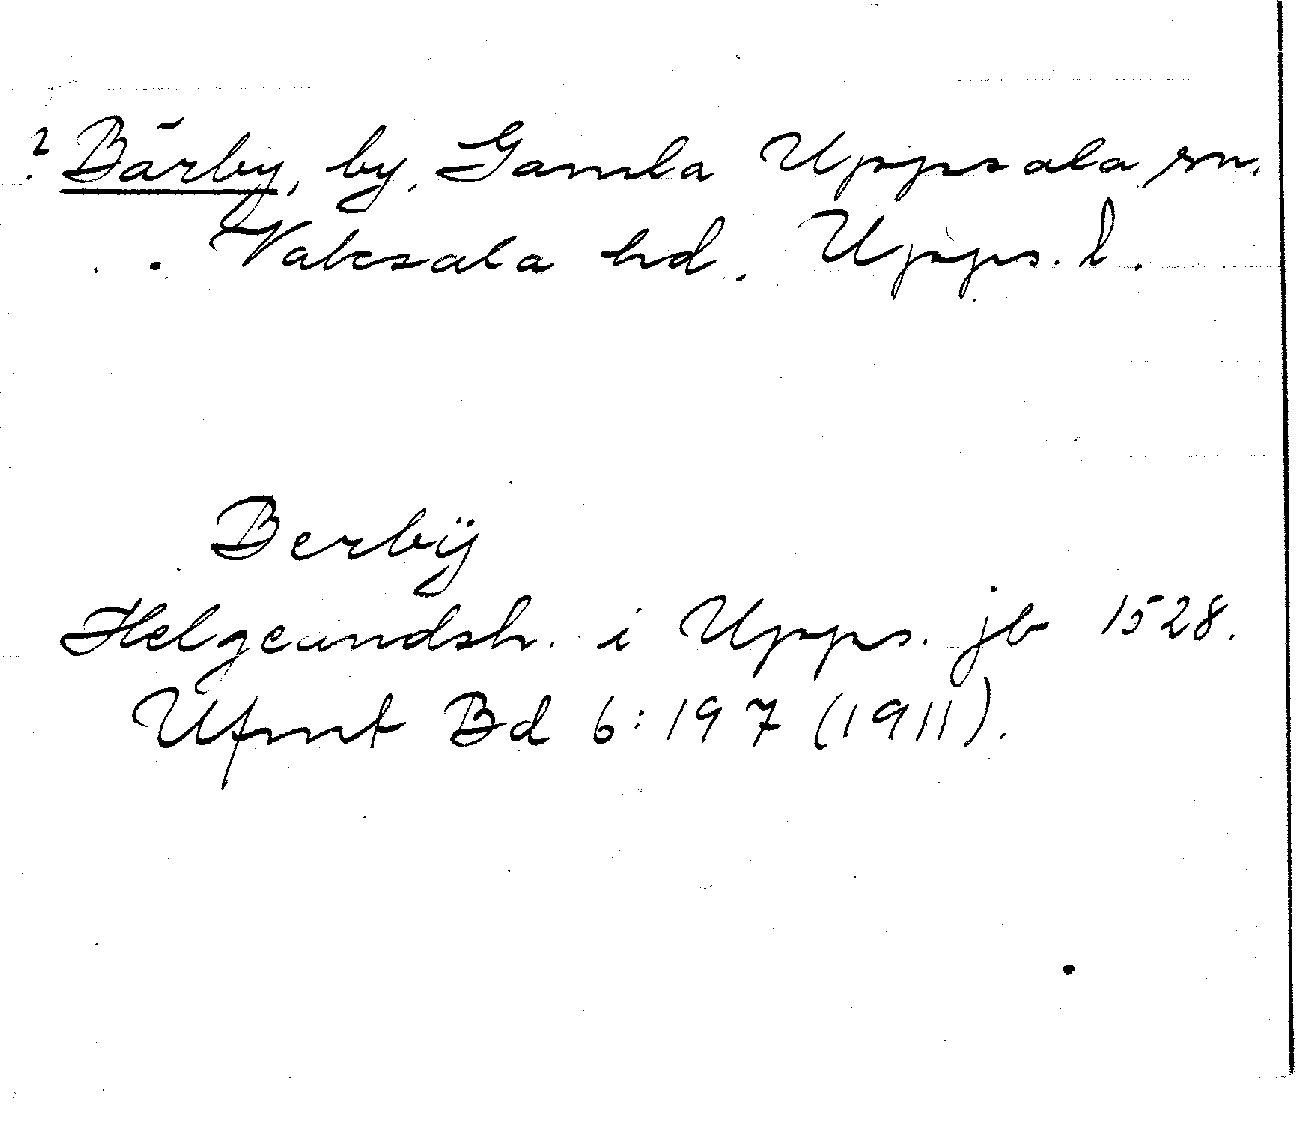 ? Bärby, by, Gamla Uppsala sn,
Vaksala hd, Upps. l.
Berbÿ
Helgeandsh. i Upps. jb 1528.
Ufmt Bd 6:197 (1911).